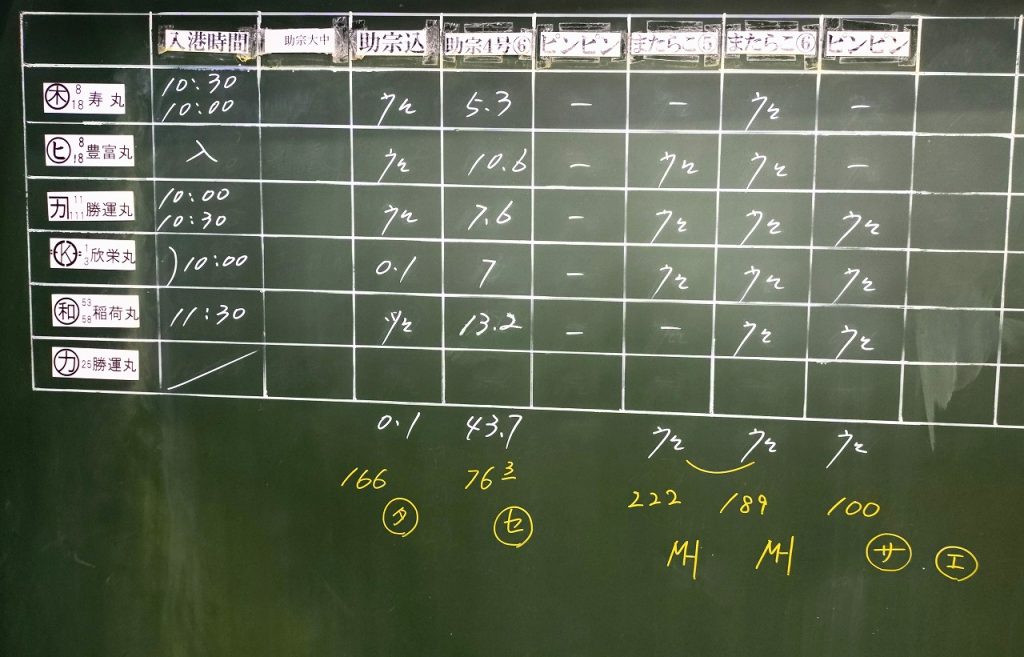 入港時間 助宗大中 助宗込 助宗4号⑥ ピンピン またらこ⑤ またらこ⑥ ピンピン
㊍ 8 18 寿丸 10:30 10:00 ウン 5.3 — — ウン —
ヒ 8 18 豊富丸 入 ウン 10.6 — ウン ウン —
カ 11 111 勝運丸 10:00 10:30 ウン 7.6 — ウン ウン ウン
K 1 3 欣栄丸 )10:00 0.1 7 — ウン ウン ウン
和 53 58 稲荷丸 11:30 ウン 13.2 — — ウン ウン
カ 25 勝運丸 /
0.1 43.7 ウン ウン ウン
166 76 3 222 189 100
タ セ サ エ